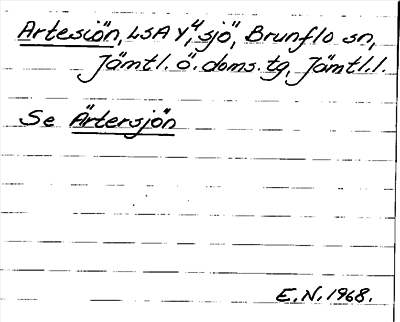 Artesiön, LSA Y,⁴ "sjö", Brunflo sn,
Jämtl. ö. doms. tg, Jämtl. l.
Se Ärtersjön
E.N. 1968.